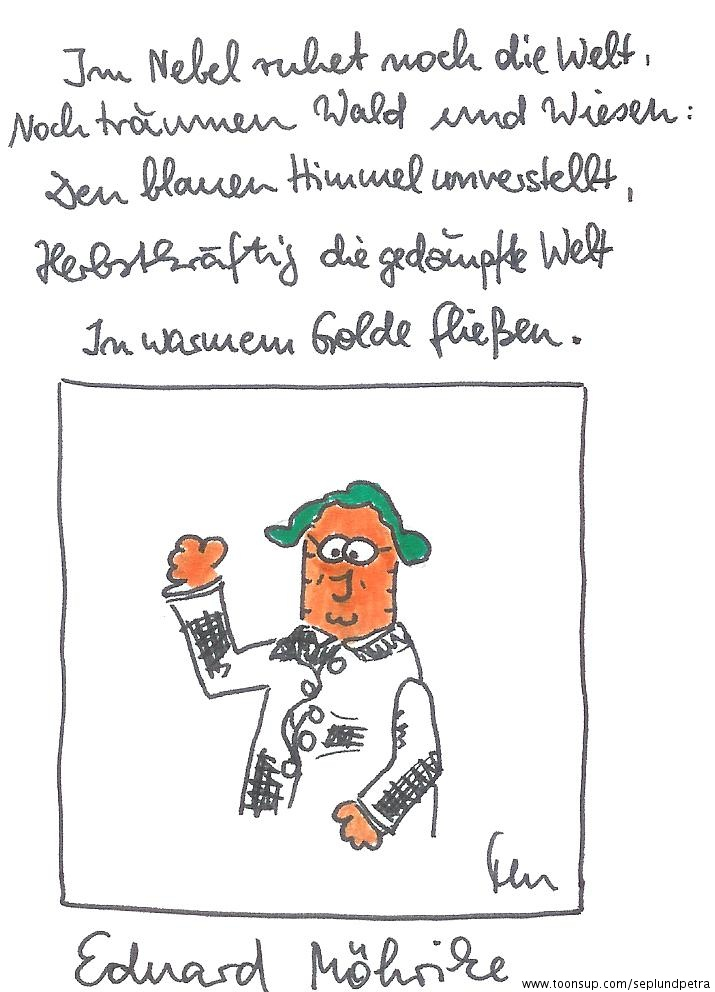 Im Nebel ruhet noch die Welt.
Noch träumen Wald und Wiesen:
Den blauen Himmel unverstellt,
Herbstkräftig die gedämpfte Welt
In warmem Golde fließen.
Ten
Eduard Möhrike
www.toonsup.com/seplundpetra